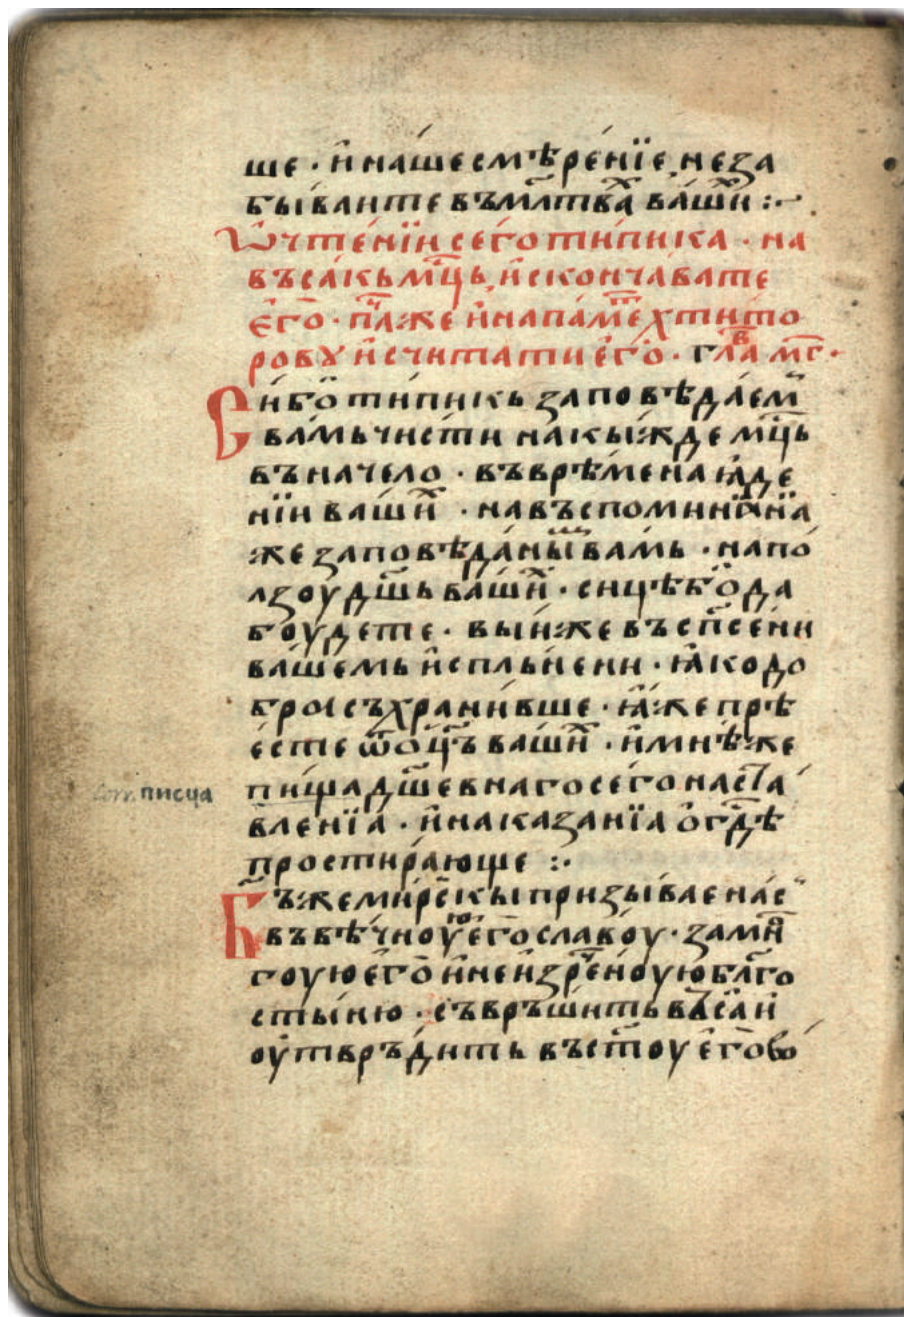 ше · и҆ на́ше смѣре́нїе не за
бы́ваите въ мл҃твах ва́ших :·
Ѡ҆ чте́нїи сего̀ ти́пика · на
въса́кь мц҃ь, и҆ скончава́ те
є҆го̀ · пач҇ же и҆ на паме҇т хти́то
ровꙋ и҆ считати є҆го̀ · глав мг҃ ·
Си́ бо̀ ти́пикь заповѣда́ем
вамь чисти на кы́жде мц҃ь
въ начело · въ врѣ́мена ꙗ҆де
нїи ва́ших · на въспоминанїа
же заповѣда́ныих вамь · на по́
лзоу дш҃ь ва́ших · си́цѣ бо̀ да
боу́дете · вы́ и҆же въ сп҃сени
ва́шемь и҆спль́нени · ꙗ҆ко до
брѡ съхрани́вше · ꙗ҆́же прѣ
є҆сте ѿ ѻ҆ц҃ъ ва́ших · и҆ мнѣ́же
пища дш҃евнаго сего наста
вле́нїа · и҆ наказанїа
простира́юще :·
писца
Бъ҃ же мирскы призы́вае на́с
въ вѣ́чноую є҆го̀ сла́воу · за мнѡ
гоую є҆го̀ и҆ неизре́ноую бл҃го
сты́ню · съвръши́ть въса и҆
оу҆твръди́ть въ ст҃оу є҆го̀ во́